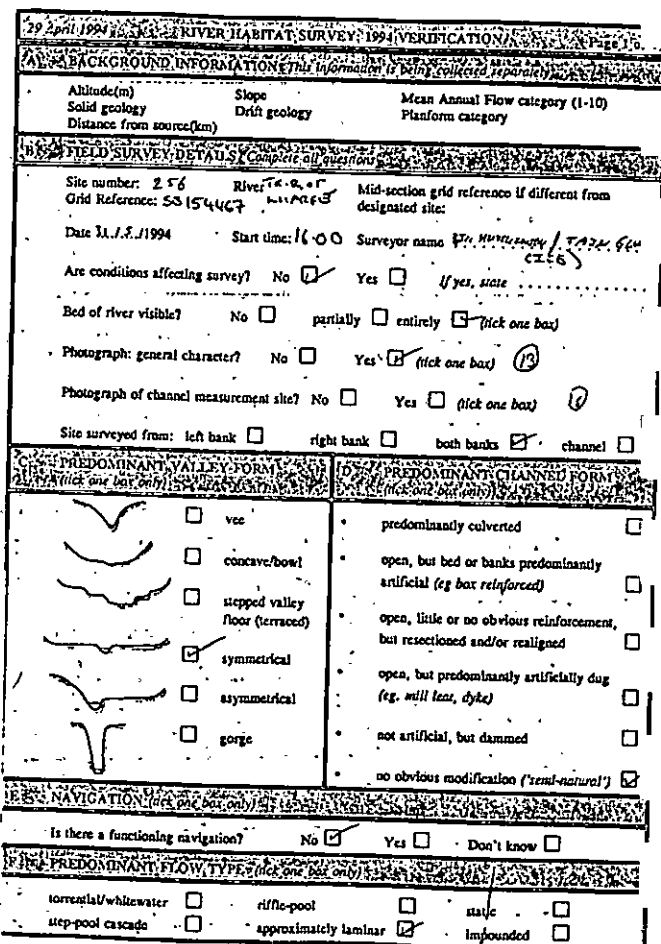 29 April 1994 RIVER HABITAT SURVEY: 1994 VERIFICATION Page 1 o
A BACKGROUND INFORMATION This information is being collected separately
Altitude(m) Slope Mean Annual Flow category (1-10)
Solid geology Drift geology Planform category
Distance from source(km)
B FIELD SURVEY DETAILS Complete all questions
Site number: 256 River Mid-section grid reference if different from
Grid Reference: designated site:
Date /1994 Start time: 16.00 Surveyor name
Are conditions affecting survey? No Yes If yes, state ..............
Bed of river visible? No partially entirely (tick one box)
Photograph: general character? No Yes (tick one box) 13
Photograph of channel measurement site? No Yes (tick one box)
Site surveyed from: left bank right bank both banks channel
C PREDOMINANT VALLEY FORM
(tick one box only)
vee
concave/bowl
stepped valley
floor (terraced)
symmetrical
asymmetrical
gorge
D PREDOMINANT CHANNEL FORM
(tick one box only)
• predominantly culverted
• open, but bed or banks predominantly
artificial (eg box reinforced)
• open, little or no obvious reinforcement,
but resectioned and/or realigned
• open, but predominantly artificially dug
(eg. mill leat, dyke)
• not artificial, but dammed
• no obvious modification ('semi-natural')
E NAVIGATION (tick one box only)
Is there a functioning navigation? No Yes Don't know
F PREDOMINANT FLOW TYPE (tick one box only)
torrential/whitewater riffle-pool static
step-pool cascade approximately laminar impounded